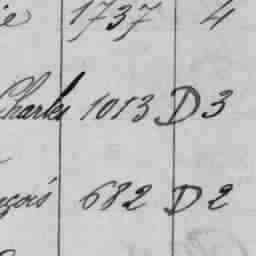 ie 1737 4
Charles 1013 D 3
nçois 682 D 2